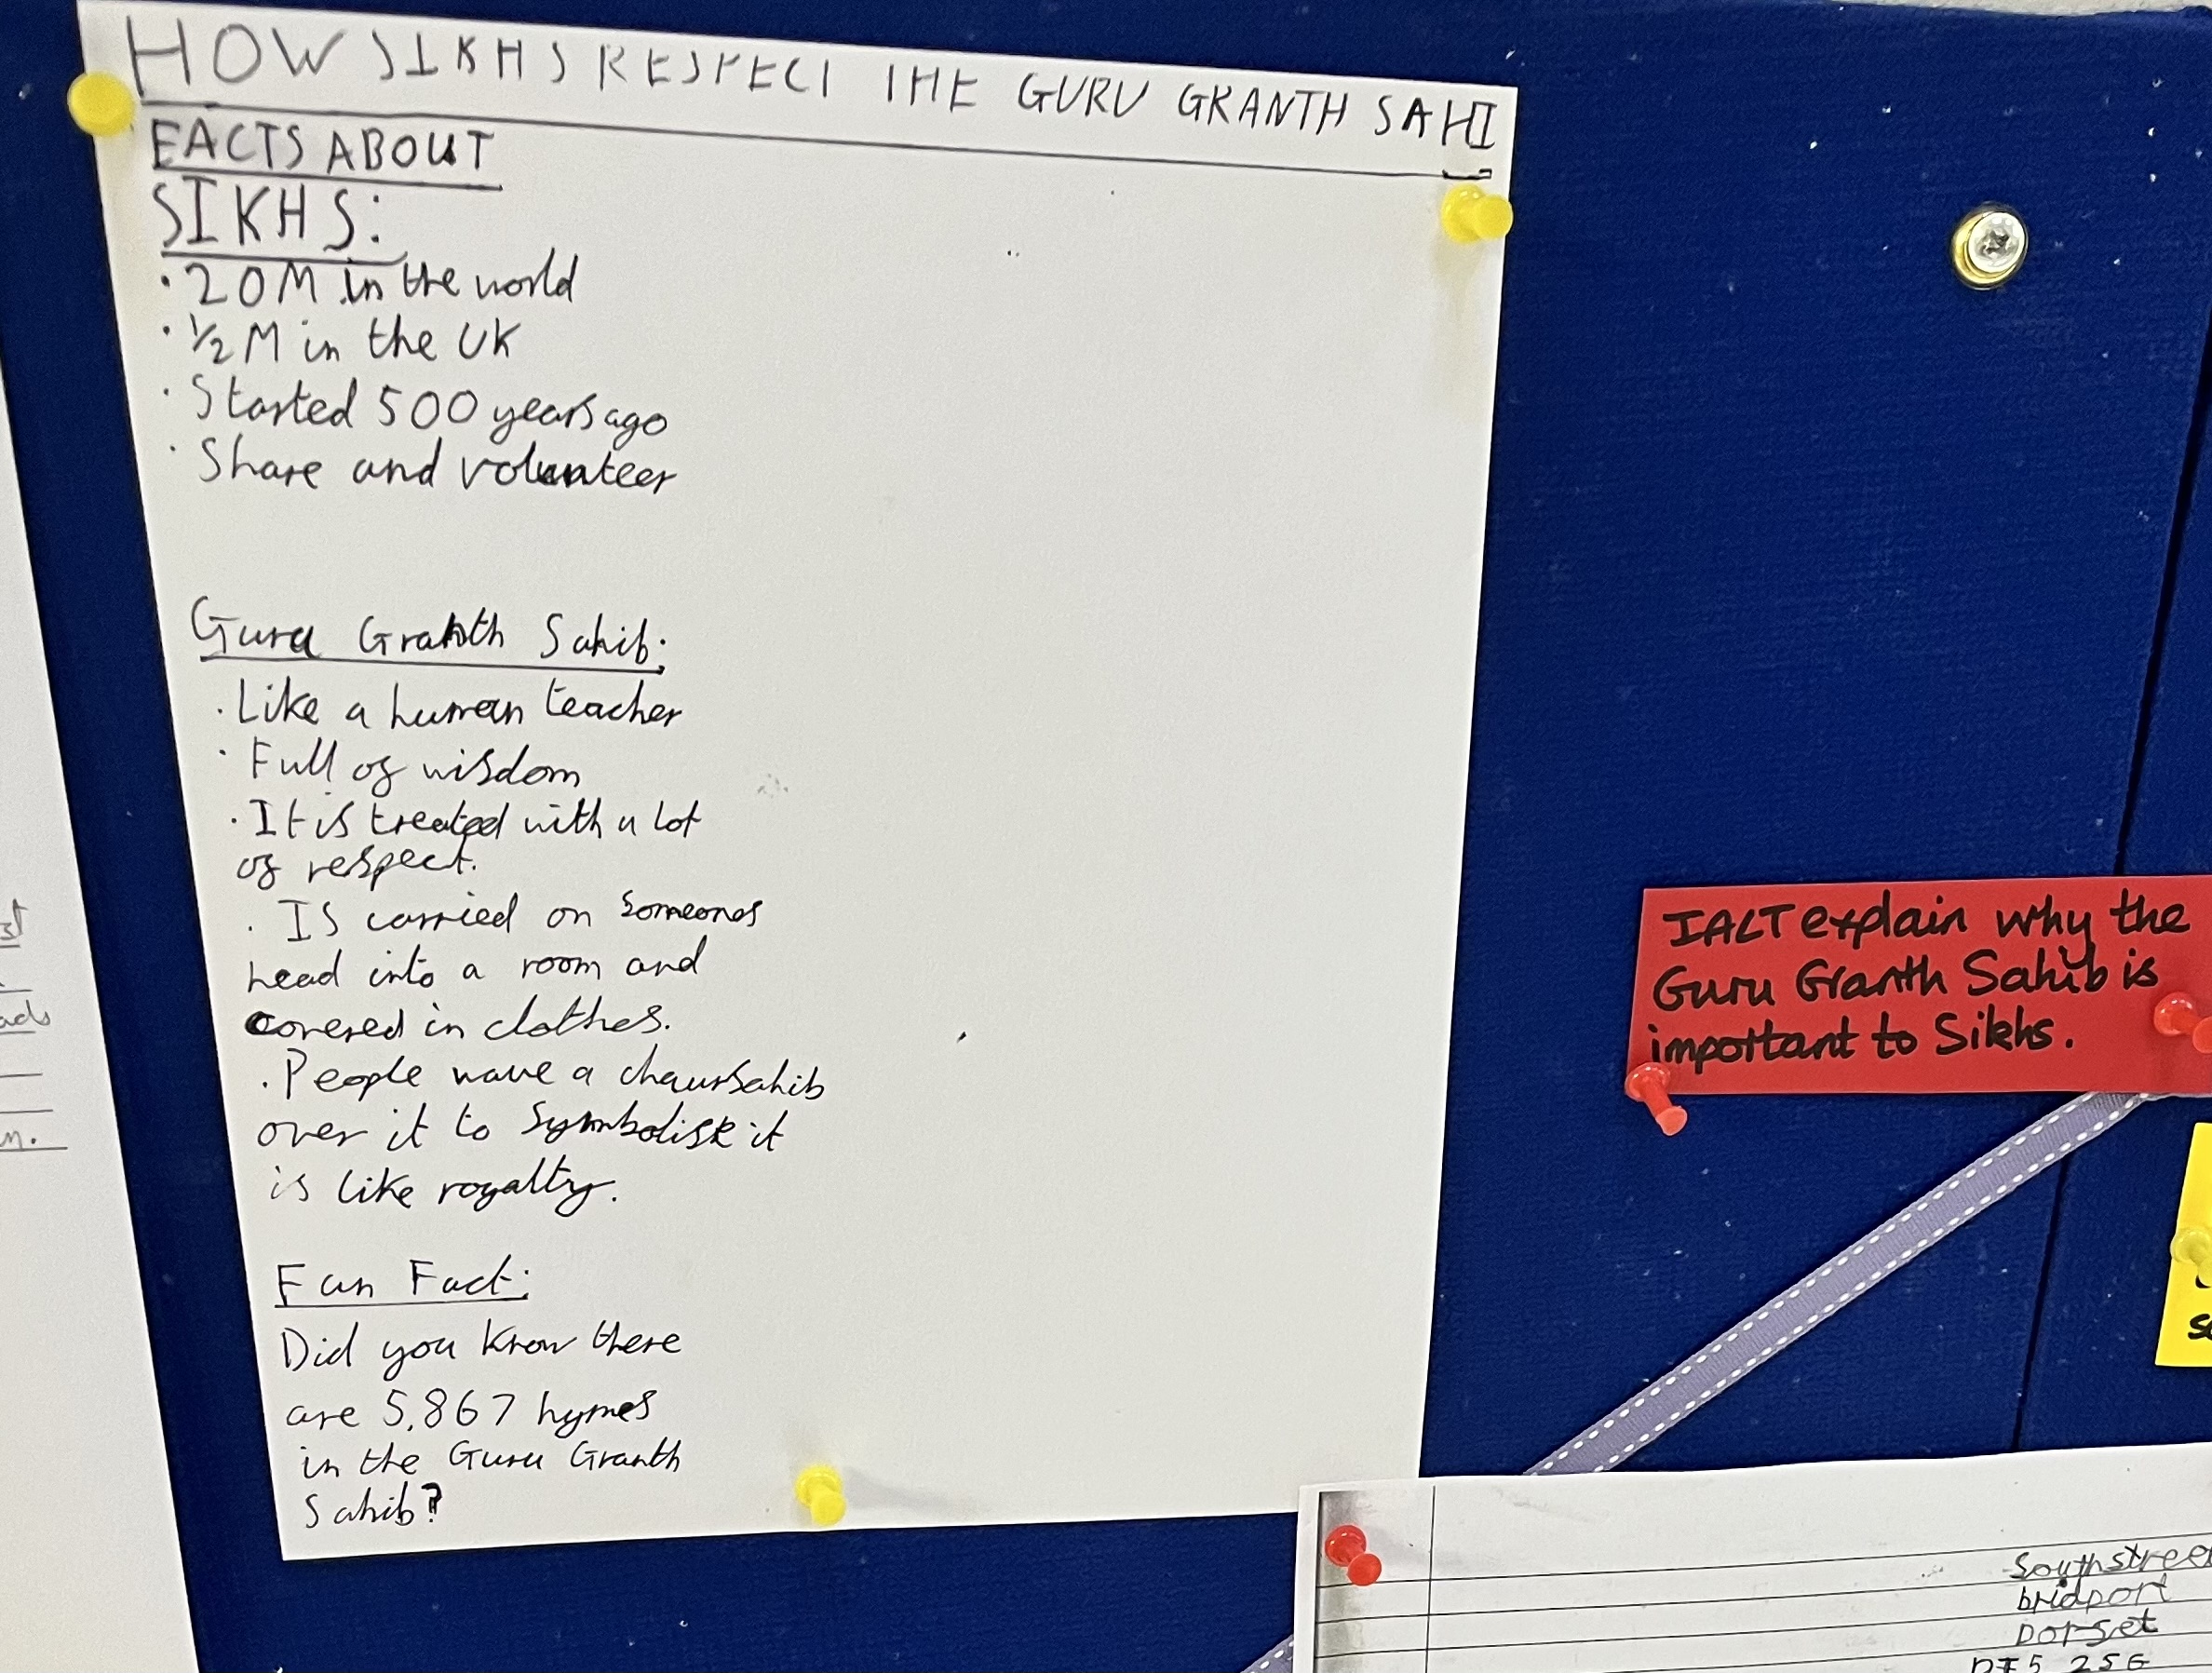 HOW SIKHS RESPECT THE GURU GRANTH SAHI
FACTS ABOUT
SIKHS:
· 20M in the world
· ½ M in the UK
· Started 500 years ago
· Share and volunteer
Guru Granth Sahib:
· Like a human teacher
· Full of wisdom
· It is treated with a lot
of respect.
· Is carried on someones
head into a room and
covered in clothes.
· People wave a chaursahib
over it to symbolise it
is like royalty.
Fun Fact:
Did you know there
are 5,867 hymes
in the Guru Granth
Sahib?
IALT explain why the
Guru Granth Sahib is
important to Sikhs.
Southstreet
bridport
Dorset